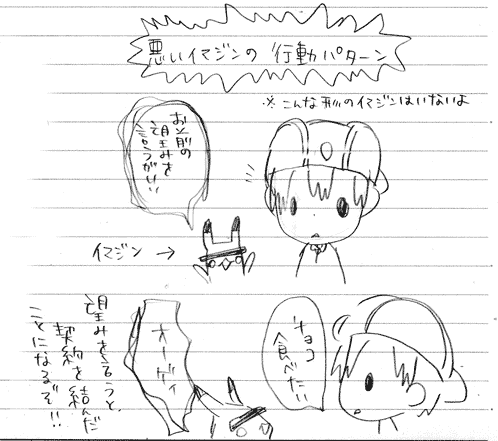 悪いイマジンの行動パターン
※こんな形のイマジンはいないよ
お前の
望みを
言うがいい
イマジン→
チョコ
食べたい
望みを言うと、
契約を結んだ
ことになるぞ!!